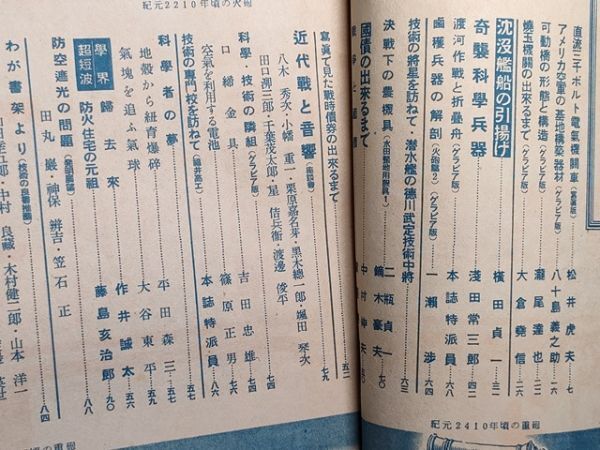 直流三千ボルト電氣機關車 (表裏版) 松井虎夫…七
アメリカ空軍の基地構築器材 (グラビア版) 八十島義之助…二六
可動橋の形態と構造 (グラビア版) 瀧尾達也…二二
燒玉機關の出來るまで (グラビア版) 大倉堯信…二六
沈沒艦船の引揚げ 横田貞一…三二
奇襲科學兵器 淺田常三郎…四二
渡河作戰と折疊舟 (グラビア版) 本誌特派員…四八
鹵穫兵器の解剖 (火砲篇2) (グラビア版) 一瀬渉…六四
技術の將星を訪ねて・潛水艦の德川武定技術中將…六三
決戰下の農機具 (水田整地用機具1) 二瓶貞一
鏑木豪夫…六七
國債の出來るまで 中村伸夫
寫眞で見た戰時債券の出來るまで…五二
近代戰と音響 (座談會)…七九
八木秀次・小幡重一・栗原嘉名芽・黑木總一郎・堀田琴次
田口㴞三郎・千葉茂太郎・星佶兵衛・渡邊俊平
科學・技術の隣組 (グラビア版)
口締金具 吉田忠雄…七四
空氣を利用する電池 篠原正男…七六
技術の專門校を訪ねて (福井高工) 本誌特派員…七七
科學者の夢
地殼から紐育爆碎 平田森三…五九
氣塊を追ふ氣球 大谷東平…五六
歸去來 作井誠太…五六
學界超短波 防火住宅の元祖 藤島亥治郎…八八
防空遮光の問題
田丸巖・神保辨吉・笠石正
わが書架より
中村良藏・木村健二郎・山本洋一…八四
紀元2210年頃の火砲
紀元2410年頃の重砲
頃の重砲